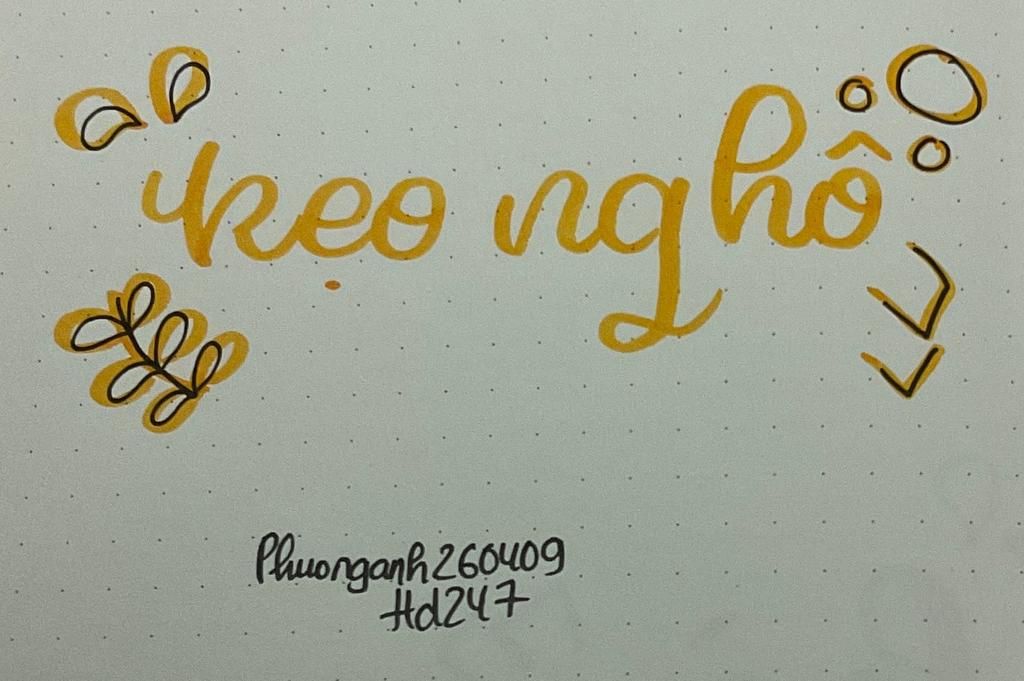 kẹo nghô
Phuonganh260409
Hd247